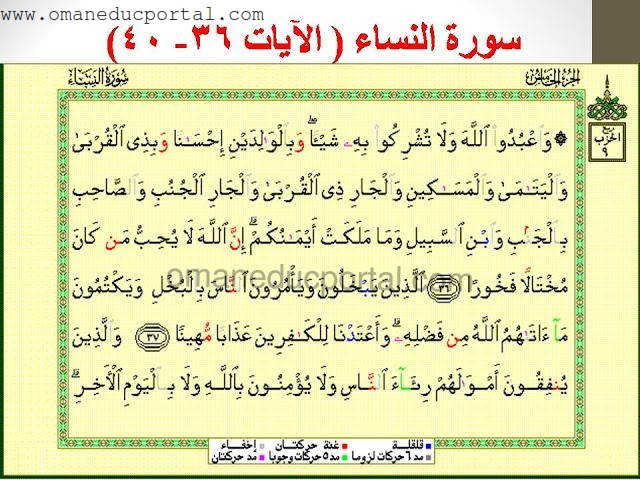 www.omaneducportal.com
سورة النساء ( الآيات ٣٦- ٤٠)
سُورَةُ النِّسَاءِ
الجُزءُ الخَامِسُ
ربع
الحزب
٩
۞ وَاعْبُدُوا اللَّهَ وَلَا تُشْرِكُوا بِهِ شَيْئًا ۖ وَبِالْوَالِدَيْنِ إِحْسَانًا وَبِذِي الْقُرْبَىٰ
وَالْيَتَامَىٰ وَالْمَسَاكِينِ وَالْجَارِ ذِي الْقُرْبَىٰ وَالْجَارِ الْجُنُبِ وَالصَّاحِبِ
بِالْجَنْبِ وَابْنِ السَّبِيلِ وَمَا مَلَكَتْ أَيْمَانُكُمْ ۗ إِنَّ اللَّهَ لَا يُحِبُّ مَن كَانَ
مُخْتَالًا فَخُورًا ﴿٣٦﴾ الَّذِينَ يَبْخَلُونَ وَيَأْمُرُونَ النَّاسَ بِالْبُخْلِ وَيَكْتُمُونَ
omaneducportal.com
مَا آتَاهُمُ اللَّهُ مِن فَضْلِهِ ۗ وَأَعْتَدْنَا لِلْكَافِرِينَ عَذَابًا مُّهِينًا ﴿٣٧﴾ وَالَّذِينَ
يُنفِقُونَ أَمْوَالَهُمْ رِئَاءَ النَّاسِ وَلَا يُؤْمِنُونَ بِاللَّهِ وَلَا بِالْيَوْمِ الْآخِرِ ۗ
قلقلة غنة حركتان إخفاء
مد ٦ حركات لزوما مد ٥ حركات وجوبا مد حركتان